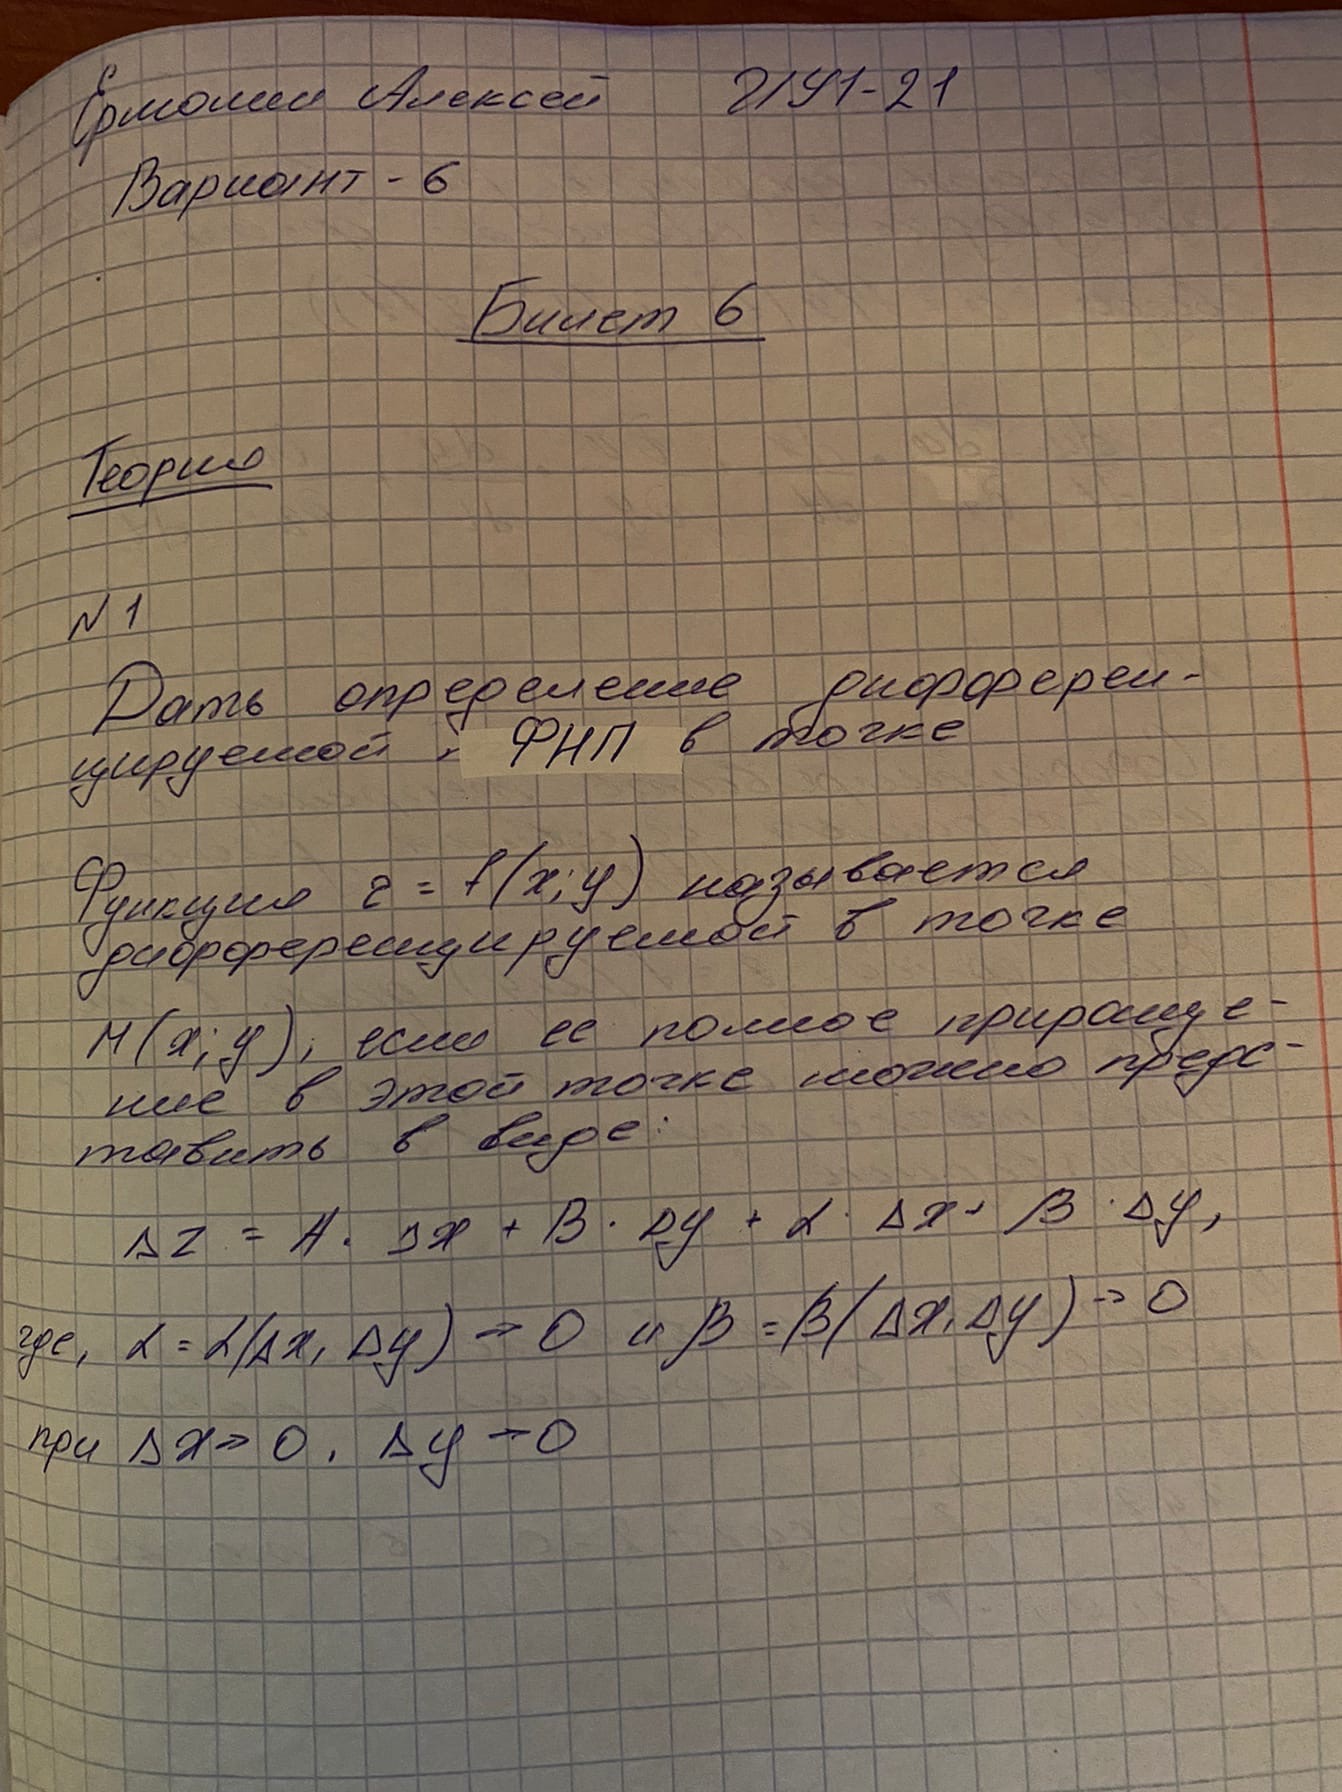 Ермолин Алексей ИУ1-21
Вариант - 6
Билет 6
Теория
N 1
Дать определение дифферен-
цируемой ФНП в точке
Функция z = f(x; y) называется
дифференцируемой в точке
M(x; y), если ее полное прираще-
ние в этой точке можно предс-
тавить в виде:
Δz = A · Δx + B · Δy + α · Δx + β · Δy,
где, α = α(Δx, Δy) → 0 и β = β(Δx, Δy) → 0
при Δx → 0, Δy → 0